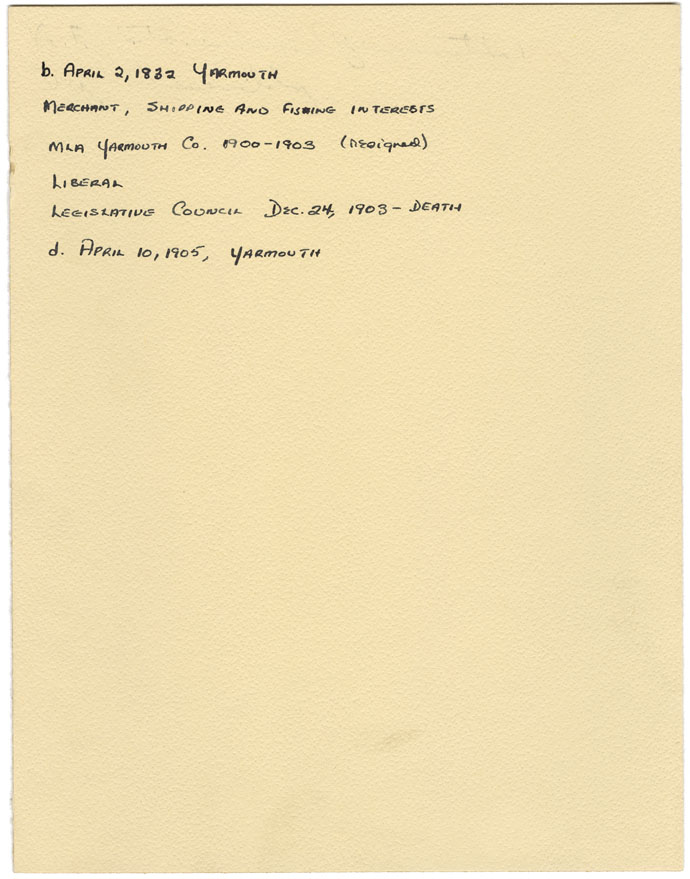 b. April 2, 1832 Yarmouth
Merchant, Shipping and Fishing Interests
MLA Yarmouth Co. 1900-1903 (resigned)
Liberal
Legislative Council Dec. 24, 1903 - Death
d. April 10, 1905, Yarmouth